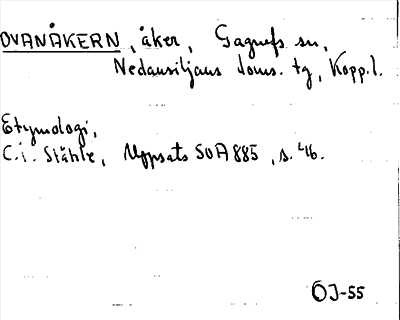 OVANÅKERN, åker, Gagnefs sn,
Nedansiljans doms. tg, Kopp.l.
Etymologi,
C.I. Ståhle, Uppsats SOA 885, s. 46.
ÖJ-55